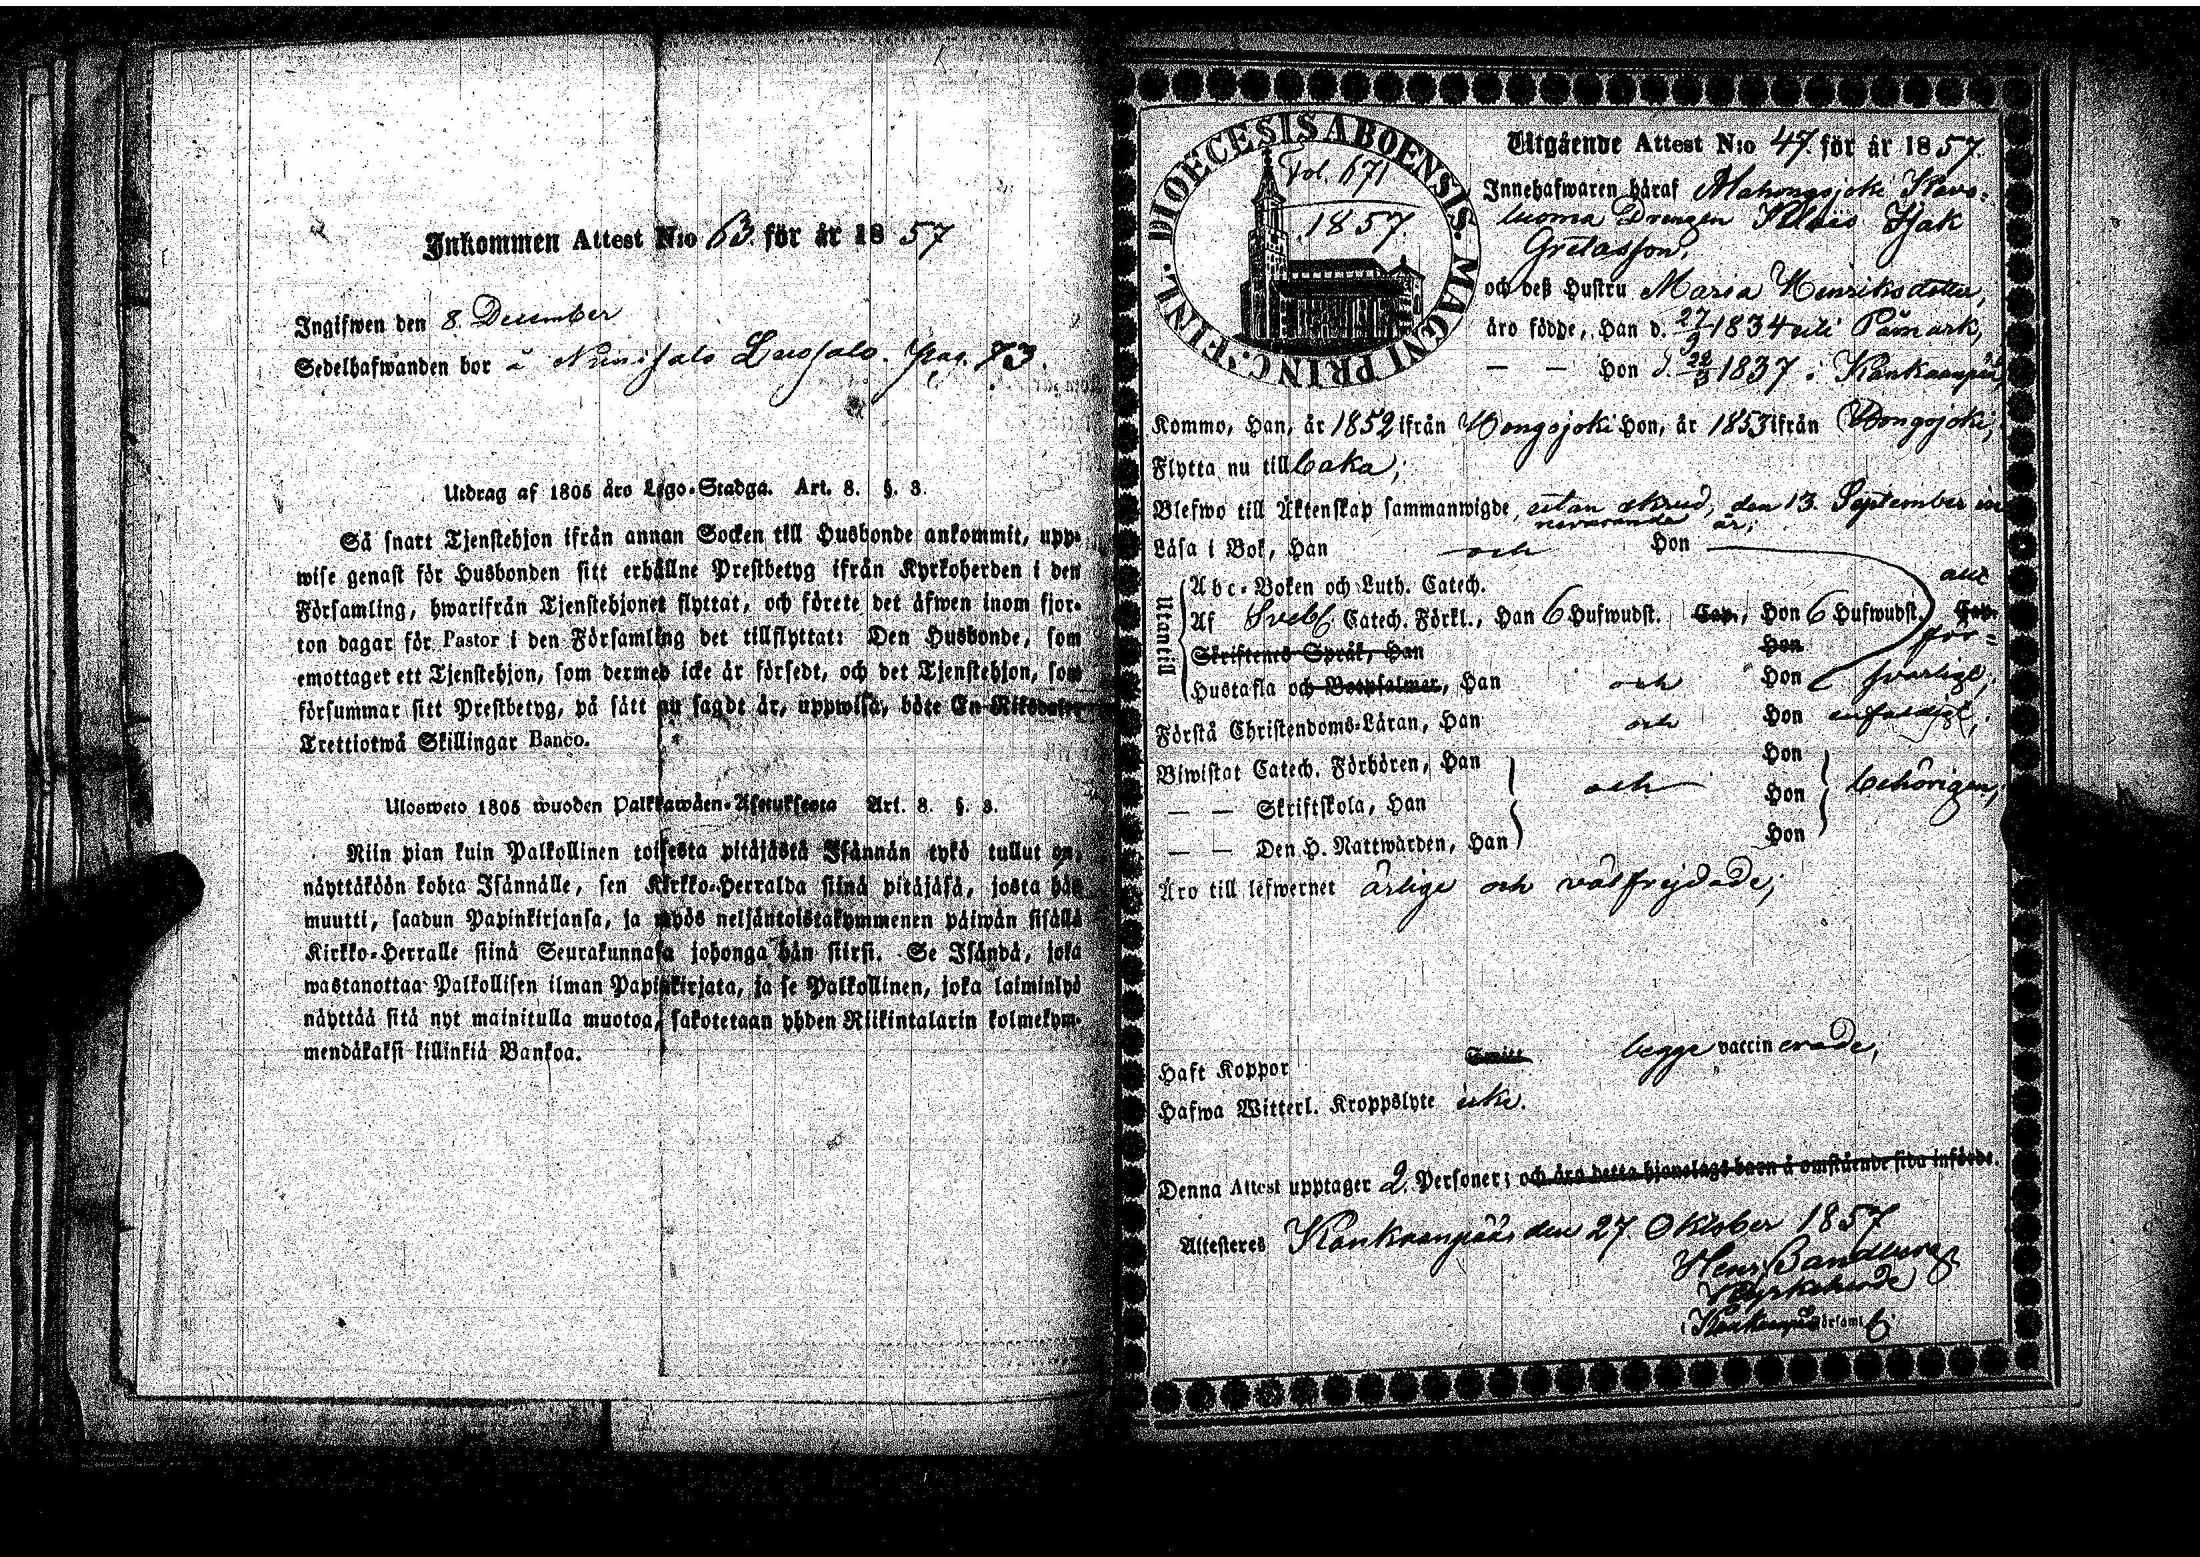 Inkommen Attest N:o 63. för år 1857
Ingifwen den 8. December
Sedelhafwanden bor i Luosalo. pag. 73.
Utdrag af 1805 års Lego-Stadga. Art. 8. §. 3.
Så snart Tjenstehjon ifrån annan Socken till Husbonde ankommit, upp-
wise genast för Husbonden sitt erhållne Prestbetyg ifrån Kyrkoherden i den
Församling, hwarifrån Tjenstehjonet flyttat, och förete det äfwen inom fjor-
ton dagar för Pastor i den Församling det tillflyttat: Den Husbonde, som
emottager ett Tjenstehjon, som dermed icke är försedt, och det Tjenstehjon, som
försummar sitt Prestbetyg, på sätt nu sagdt är, uppwisa, böte En Riksdaler
Trettiotwå Skillingar Banco.
Ulosweto 1805 wuoden Palkkawäen-Asetuksesta Art. 8. §. 3.
Niin pian kuin Palkollinen toisesta pitäjästä Isännän tykö tullut on,
näyttäköön kohta Isännälle, sen Kirkko-Herralda siinä pitäjäsä, josta hän
muutti, saadun Papinkirjansa, ja myös neljäntoistakymmenen päiwän sisällä
Kirkko-Herralle siinä Seurakunnasa johonga hän siirsi. Se Isändä, joka
wastanottaa Palkollisen ilman Papinkirjata, ja se Palkollinen, joka laiminlyö
näyttää sitä nyt mainitulla muotoa, sakotetaan yhden Riikintalarin kolmekym-
mendäkaksi killinkiä Bankoa.
DIOECESIS ABOENSIS. MAGNI PRINC. FINL.
Fol. 671
1857.
Utgående Attest N:o 47. för år 1857.
Innehafwaren häraf
Drengen Isak
Gretasson,
och deß Hustru Maria Henriksdotter,
äro födde, Han d. 27/9 1834 uti Påmark,
— — Hon d. 22/3 1837 i Kankaanpää,
Kommo, Han, år 1852 ifrån Hongojoki Hon, år 1853 ifrån Hongojoki,
Flytta nu tillbaka,
Blefwo till Äktenskap sammanwigde, utan skrud, den 13. September in
newarande år;
Läsa i Bok, Han och Hon
Utantill
Abc-Boken och Luth. Catech.
Af Svebil. Catech. Förkl., Han 6 Hufwudst. Cap., Hon 6 Hufwudst. Cap.
Skriftenes Språk, Han Hon
Hustafla och Botpsalmer, Han och Hon
allt
för-
svarligt,
Förstå Christendoms-Läran, Han och Hon enfaldigt,
Biwistat Catech. Förhören, Han Hon
— — Skriftskola, Han och Hon behörigen,
— — Den H. Nattwarden, Han Hon
Äro till lefwernet ärlige och välfrejdade,
Haft Koppor Smitt begge vaccinerade,
Hafwa Witterl. Kroppslyte icke.
Denna Attest upptager 2. Personer; och äro detta hjonelags barn å omstående sida införde.
Attesteres Kankaanpää, den 27. Oktober 1857
Kyrkoherde
i Kankaanpää Församl.